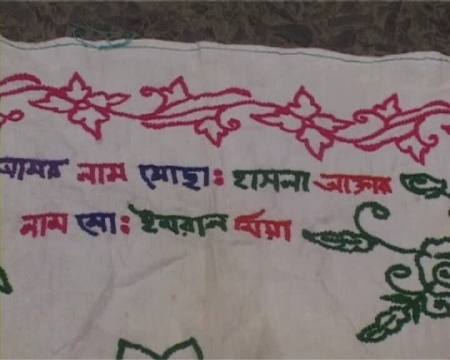 আমার নাম মোছা: হাসনা আক্তার
নাম মো: ইমরান মিয়া